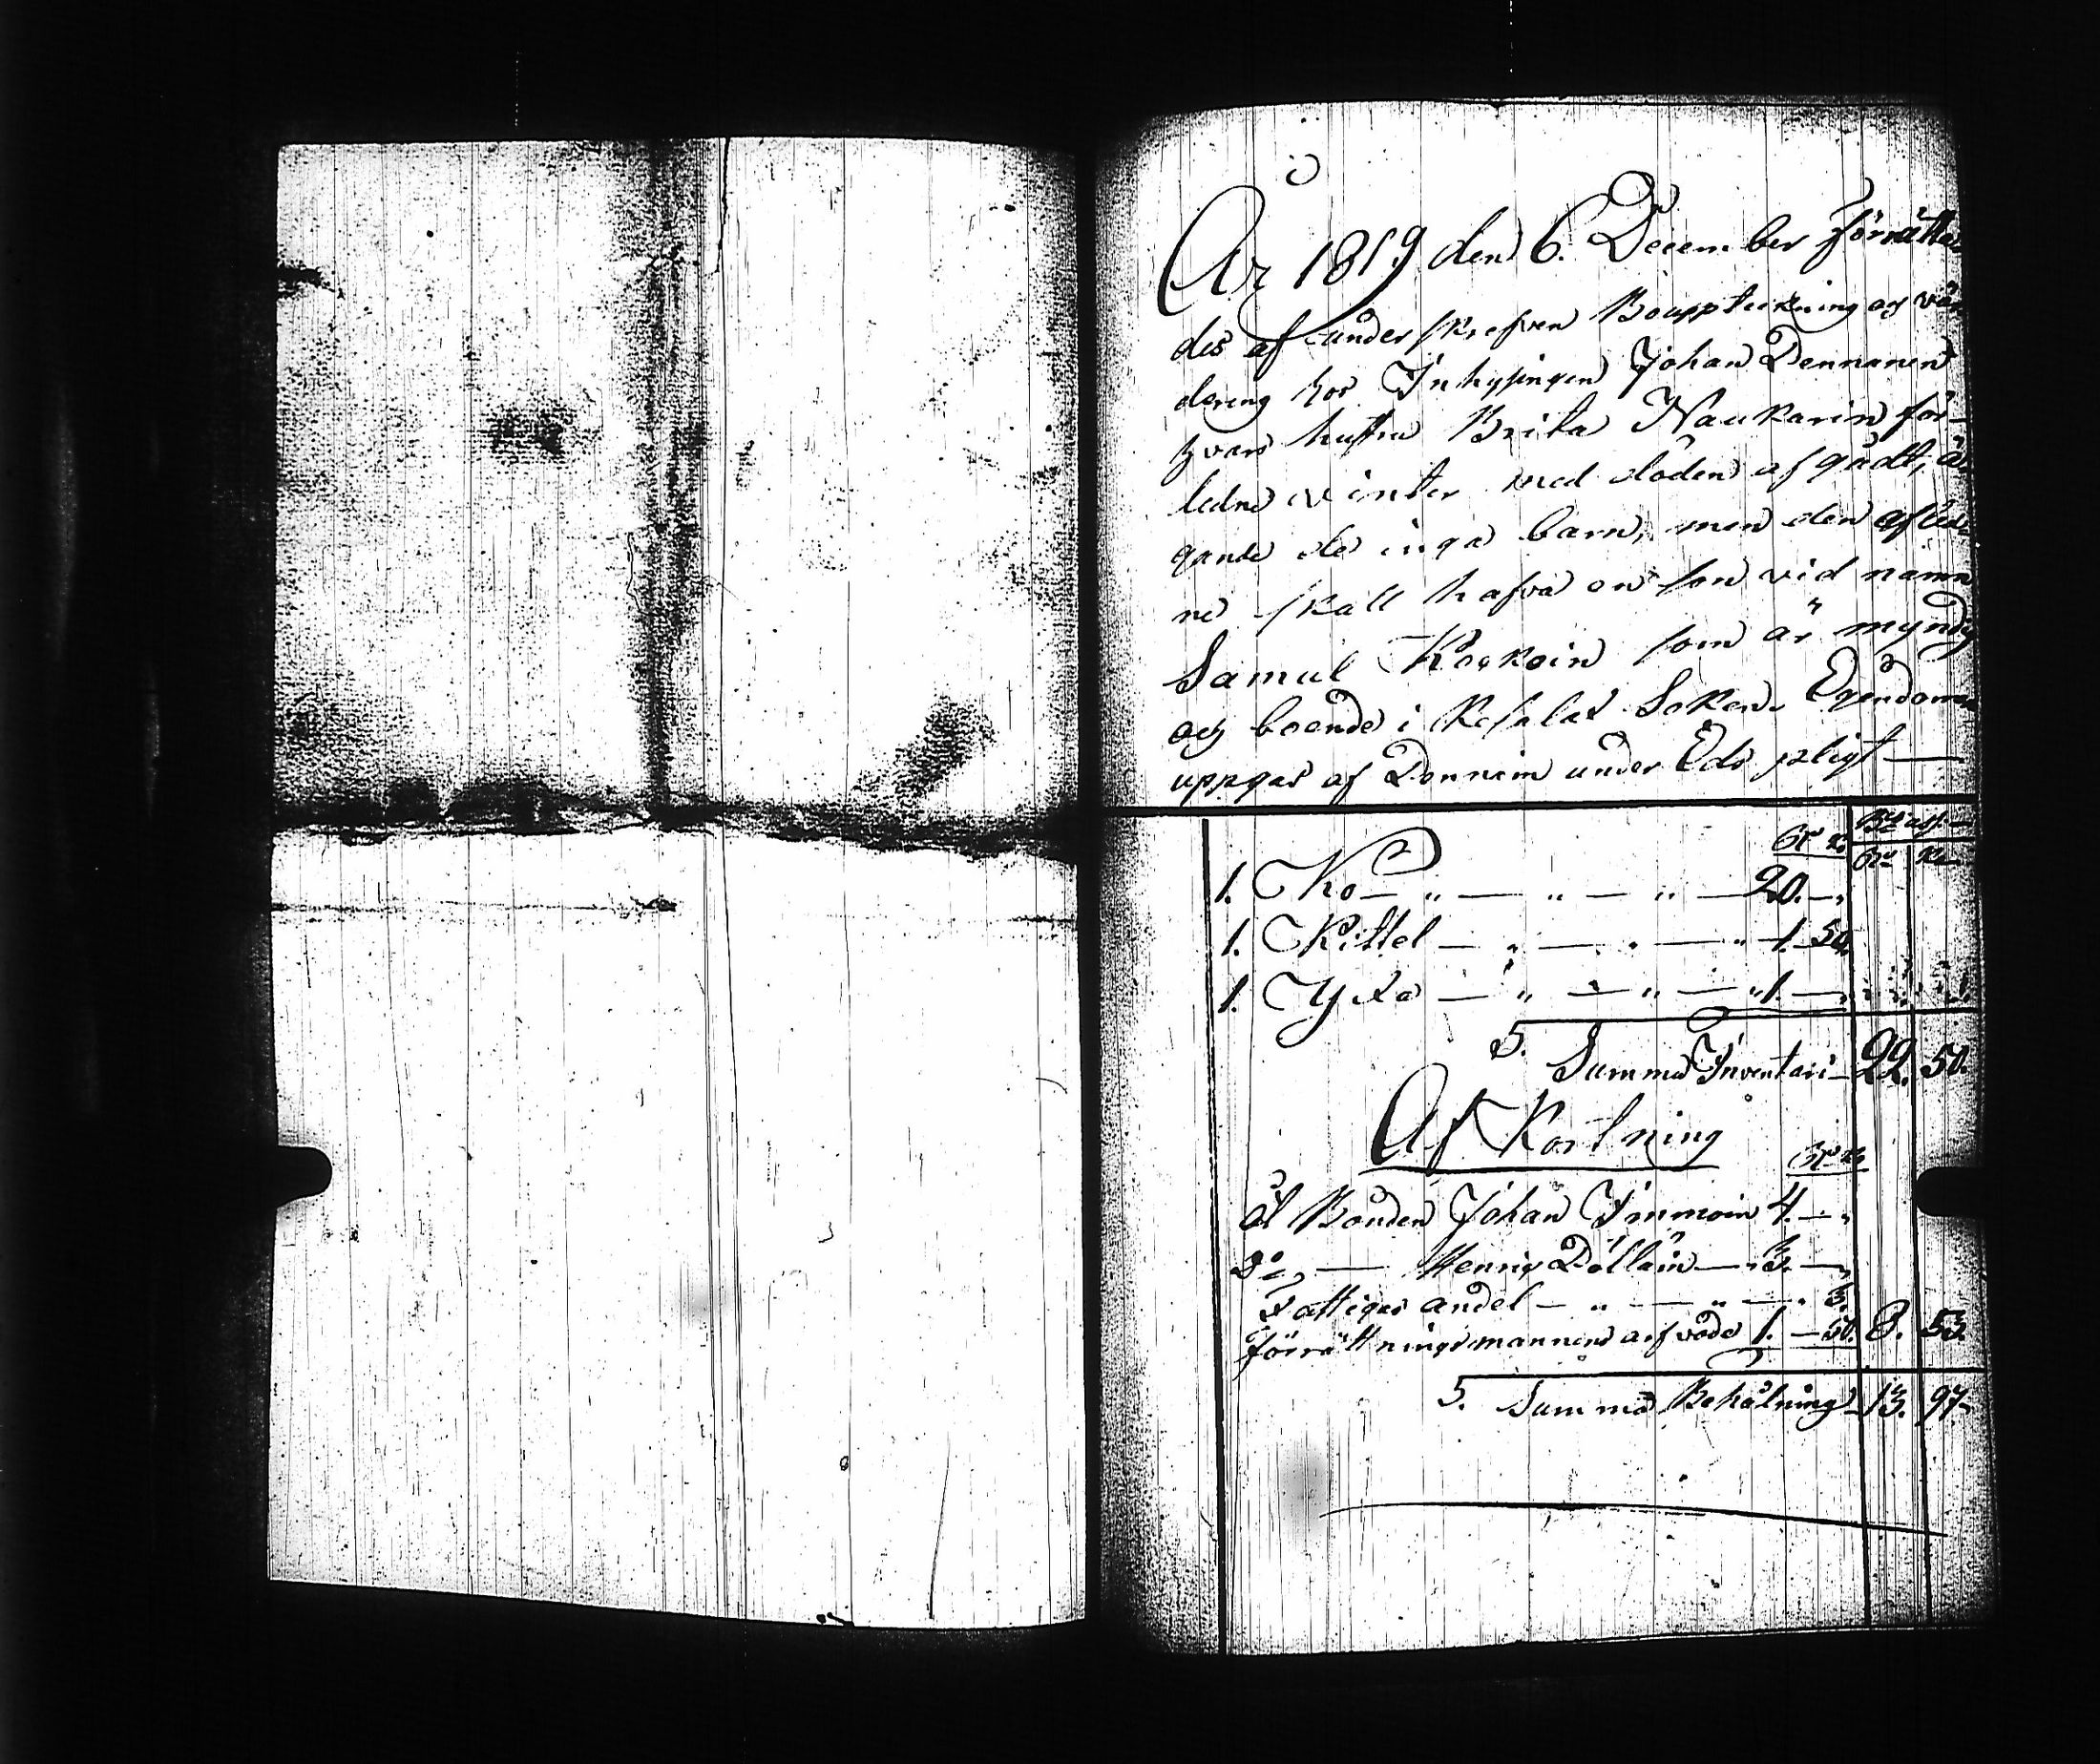 År 1819 den 6. December förrätta-
des af underskrefven Bouppteckning och vär
dering hos Inhysingen Johan Dennanen
hvars hustru Brita Naukarin för-
ledne vinter med döden afgådt, ä
gande de inga barn, men den afled
ne skall hafva en son vid namn
Samul Koskoin som är myndig
och boende i Kesalax Soken. Egendomen
uppgas af Dennein under Eds pligt —
B:co ass.
Rr k. Rr k.
1. Ko — „ — „ — „ — 20. — „
1. Kittel — „ — „ — „ 1. 50.
1. Yxa — „ — „ — „ 1. — „
S. Summa Inventari — 22. 50.
Af Kortning
Rr k.
åt Bonden Johan Immoin 4. — „
D:o — Henrig Dölläin — 3. — „
Fattigas andel — „ — „ — „ 3.
förrättningsmannens arfvode 1. — 50. 8. 53.
S. Summa Behålning 13. 97.